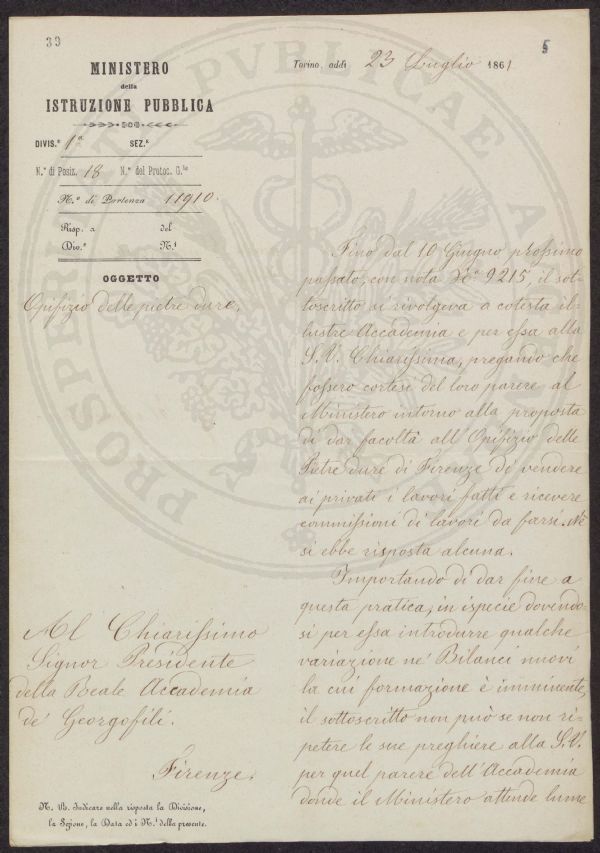 39
5
MINISTERO
della
ISTRUZIONE PUBBLICA
DIVIS.e 1a SEZ.e
N.o di Posiz. 18 N.o del Protoc. G.le
N.o di Partenza 11910.
Risp. a del
Div.e N.i
OGGETTO
Opifizio delle pietre dure.
Torino, addì 23 Luglio 1861
Fino dal 10 Giugno prossimo
passato, con nota No 9215, il sot-
toscritto si rivolgeva a cotesta il-
lustre Accademia e per essa alla
S.V. Chiarissima, pregando che
fossero cortesi del loro parere al
Ministero intorno alla proposta
di dar facoltà all'Opifizio delle
Pietre dure di Firenze di vendere
ai privati i lavori fatti e ricevere
commissioni di lavori da farsi. Nè
si ebbe risposta alcuna.
Importando di dar fine a
questa pratica, in ispecie dovendo-
si per essa introdurre qualche
variazione ne' Bilanci nuovi
la cui formazione è imminente,
il sottoscritto non può se non ri-
petere le sue preghiere alla S.V.
per quel parere dell'Accademia
donde il Ministero attende lume
Al Chiarissimo
Signor Presidente
della Reale Accademia
de' Georgofili.
Firenze.
N. B. Indicare nella risposta la Divisione,
la Sezione, la Data ed i N.i della presente.
PROSPERITATI PVBLICAE A